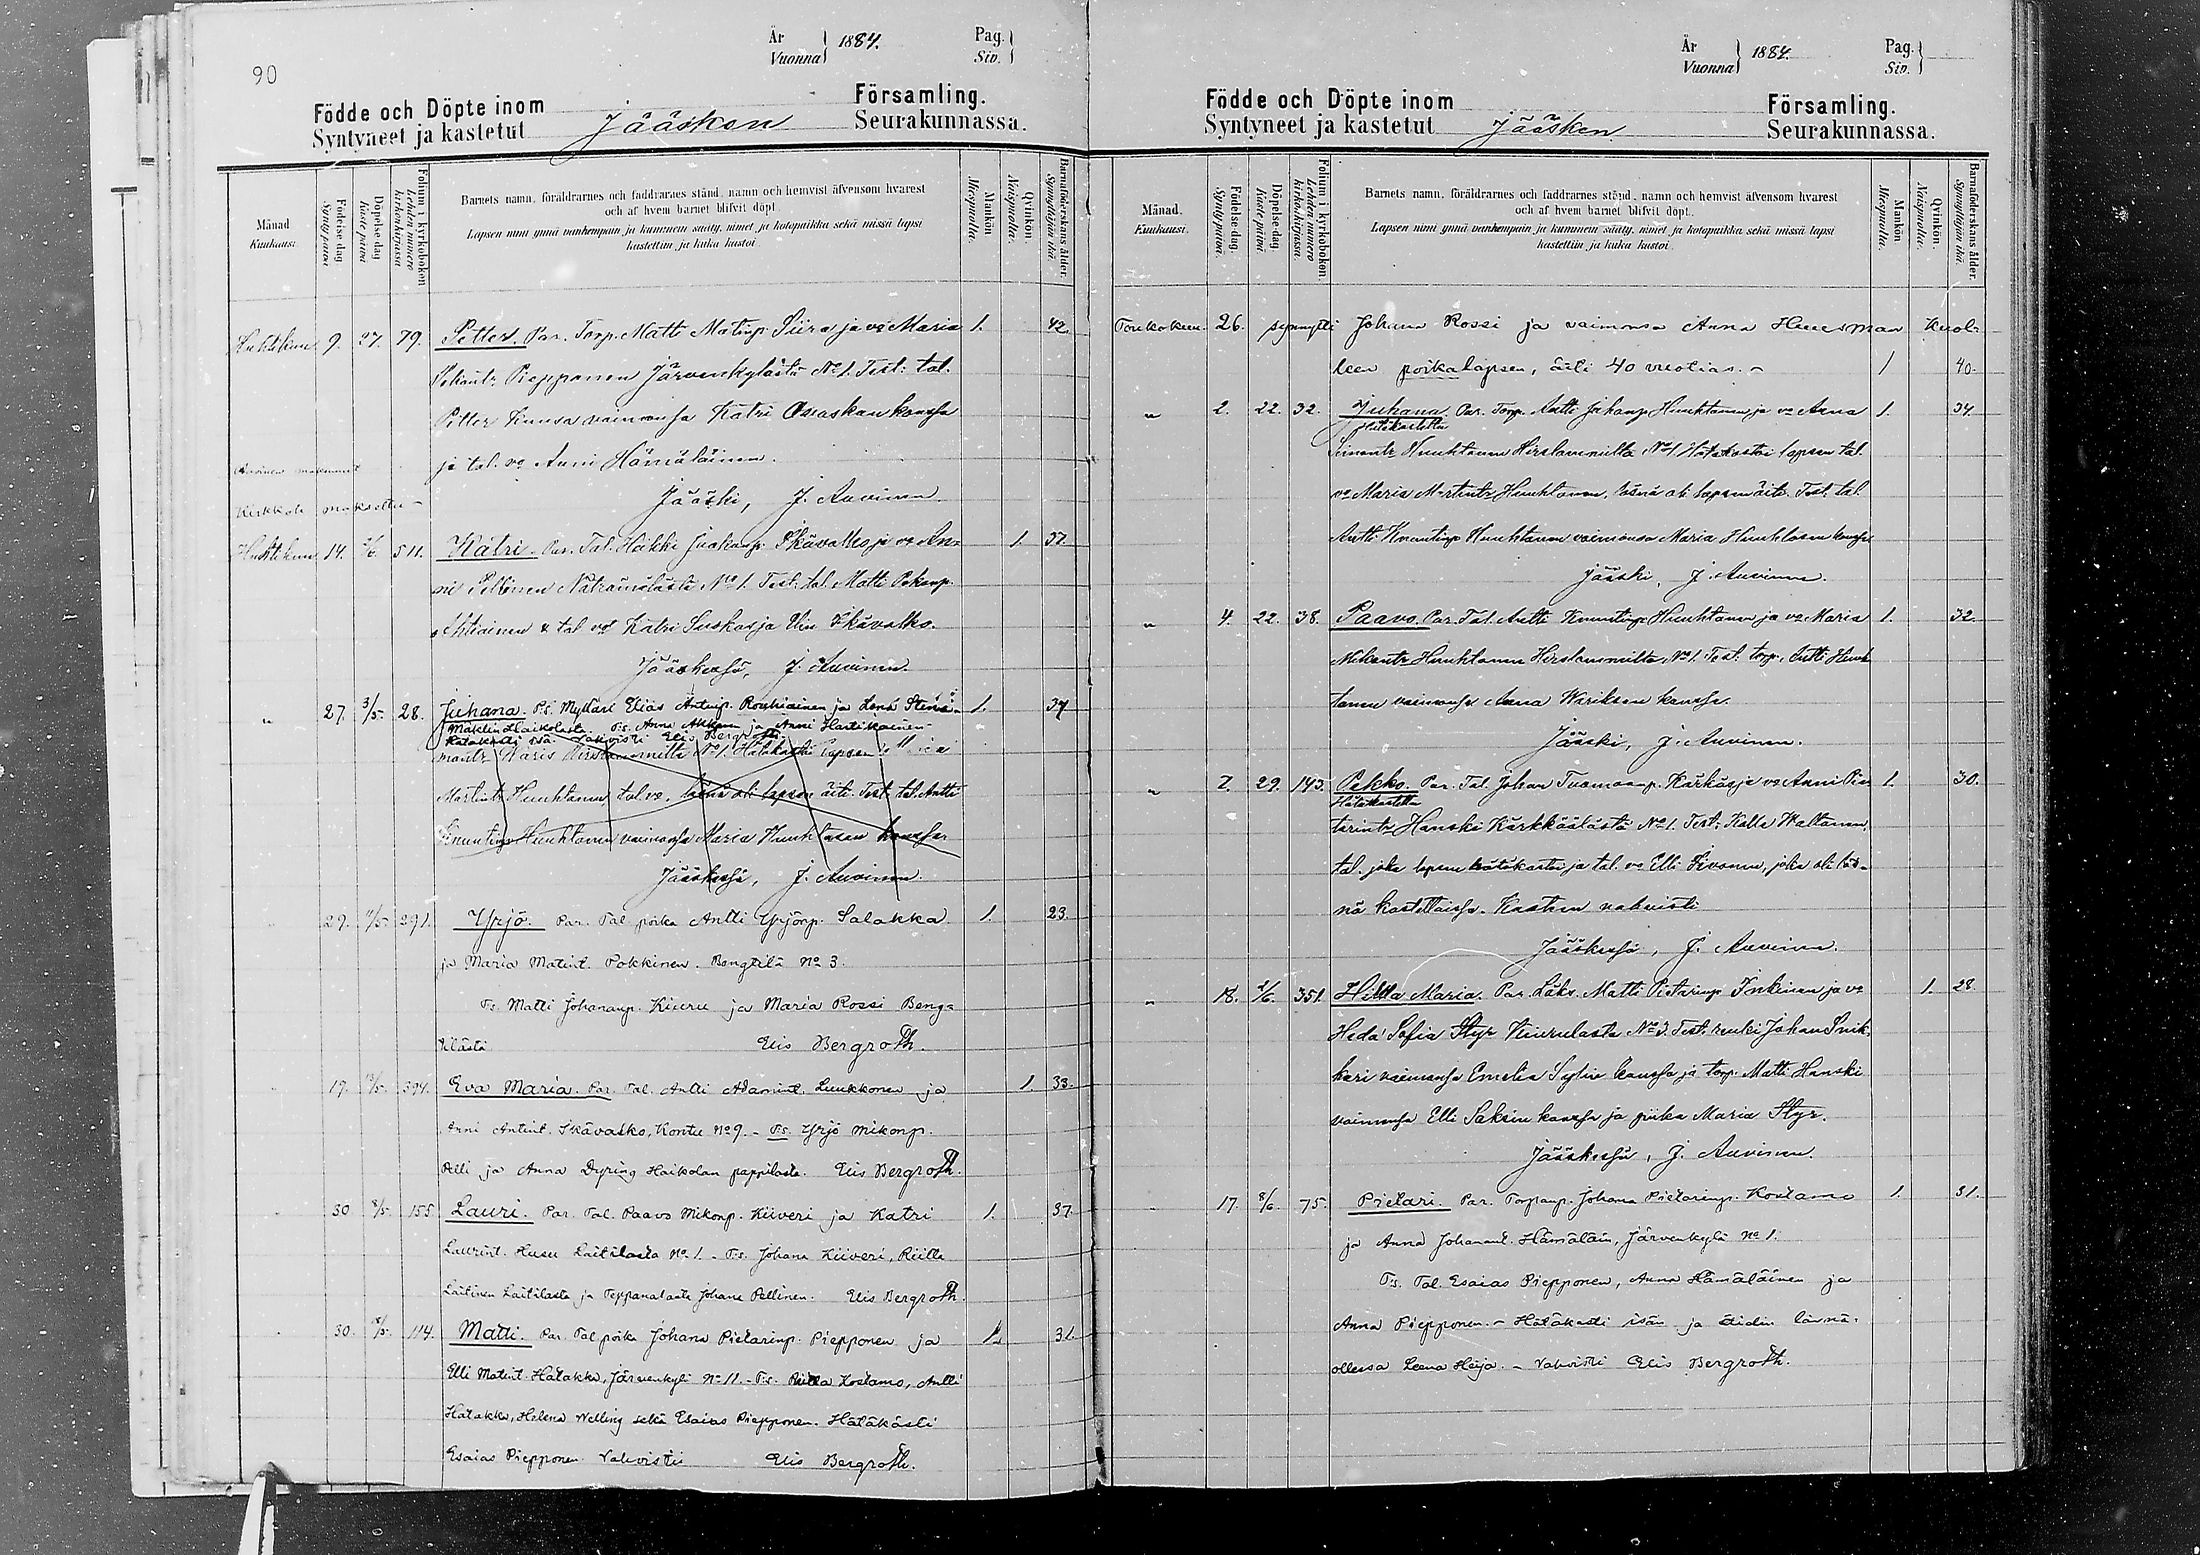 90
År
Vuonna
1884.
Pag.
Siv.
Födde och Döpte inom
Syntyneet ja kastetut
Jääsken
Församling.
Seurakunnassa.
Månad
Kuukausi.
Födelse dag
Synty päivä
Döpelse dag
Kaste päivä
Folium i kyrkoboken
Lehden numero kirkonkirjassa
Barnets namn, föräldrarnes och faddrarnes stånd, namn och hemvist äfvensom hvarest
och af hvem barnet blifvit döpt.
Lapsen nimi ynnä vanhempain ja kummein sääty, nimet ja kotopaikka sekä missä lapsi
kastettiin ja kuka kastoi.
Mankön
Miespuolia.
Qvinkön.
Naispuolia.
Barnaföderskans ålder.
Synnyttäjän ikä.
Huhtikuu 9. 27. 79. Petter. Par. Torp. Matti Matinp. Siira ja vo Maria 1. 42.
Piepponen Järvenkylästä No 1. Test: tal.
Petter Kuusa vaimonsa Katri Ovaskan kanssa
ja tal. vo Anni Hämäläinen.
Jääski, J. Auvinen.
Kirkkoh maksettu -
Huhtikuu 14. 511. Katri. Par. Tal. Heikki Juhanp. Ikävalko ja vo An- 1. 37.
ni Pellinen Näträmälästä No 1. Test: tal. Matti Pekanp.
Ahtiainen & tal vot Katri Suskas ja Elin Ikävalko.
Jääskessä, J. Auvinen.
" 27. 3/5. 28. Juhana. Ps. Mylläri Elias Antinp. Rouhiainen ja Lena 1. 37
Haikolasta Ts. Anna ja Anni Hartikainen
Hätäkasti Vahvisti Elis Bergroth
No 1. Hätäkasti lapsen
Martintr Huuhtanen tal. vo. läsnä oli lapsen äiti. Test. tal. Antti
Knuutinp Huuhtanen vaimonsa Maria Huuhtasen kanssa
Jääskessä, J. Auvinen
29. 291. Yrjö. Par. Tal poika Antti Yrjönp. Salakka 1. 23.
ja Maria Matint. Pokkinen. Bengtilä No 3.
Ts. Matti Johananp. Kiuru ja Maria Rossi Beng-
tilästä Elis Bergroth.
19. 394. Eva Maria. Par. Tal. Antti Adamint. Luukkonen ja 1. 33.
Anni Antint. Ikävalko, Kontu No 9. - Ts. Yrjö Mikonp.
Pelli ja Anna Dyring Haikolan pappilasta. Elis Bergroth.
30 8/5. 155 Lauri. Par. Tal. Paavo Mikonp. Kiiveri ja Katri 1. 37.
Laurint. Husu Laitilasta No 1. - Ts. Johana Kiiveri, Riitta
Laitinen Laitilasta ja Teppanalasta Johana Pellinen. Elis Bergroth.
30. 114. Matti. Par. Tal poika Johana Pietarinp. Piepponen ja 1. 31.
Elli Matint. Hatakka, Järvenkylä No 11. - Ts. Riitta Kostamo, Antti
Hatakka, Helena Welling sekä Esaias Piepponen. Hätäkasti
Esaias Piepponen Vahvisti Elis Bergroth.
År
Vuonna
1884.
Pag.
Siv.
Födde och Döpte inom
Syntyneet ja kastetut
Jääsken
Församling.
Seurakunnassa.
Månad.
Kuukausi.
Födelse dag.
Synty päivä.
Döpelse dag
Kaste päivä.
Folium i kyrkoboken
Lehden numero kirkonkirjassa.
Barnets namn, föräldrarnes och faddrarnes stånd, namn och hemvist äfvensom hvarest
och af hvem barnet blifvit döpt.
Lapsen nimi ynnä vanhempain ja kummein sääty, nimet ja kotopaikka sekä missä lapsi
kastettiin ja kuka kastoi.
Mankön
Miespuolia.
Qvinkön.
Naispuolia.
Barnaföderskans ålder.
Synnyttäjän ikä.
Toukokuu. 26. synnytti Johana Rossi ja vaimonsa Anna kuol-
leen poikalapsen, äiti 40 vuotias. - 1 40.
" 2. 22. 32. Juhana. Par. Torp. Antti Juhanp Huuhtanen ja vo Anna 1. 34.
Hätäkastettu
Simontr Huuhtanen No 1. Hätäkastoi lapsen tal.
vo Maria Martintr Huuhtanen, läsnä oli lapsen äiti. Test. tal.
Antti Knuutinp Huuhtanen vaimonsa Maria Huuhtasen kanssa
Jääski, J. Auvinen.
" 4. 22. 38. Paavo. Par. Tal. Antti Knuutinp Huuhtanen ja vo Maria 1. 32.
Huuhtanen No 1. Test: torp. Antti Huuh-
tanen vaimonsa Anna kanssa.
Jääski, J. Auvinen.
" 7. 29. 143. Pekko. Par. Tal. Johan Tuomaanp. Kärkäs ja vo Anni Pie- 1. 30.
Hätäkastettu
tarintr Hanski Kärkkäälästä No 1. Test: Kalle Waltanen,
tal. joka lapsen hätäkastoi ja tal. vo Elli Sivonen, joka oli läs-
nä kastettaissa. Kasteen vahvisti
Jääskessä, J. Auvinen.
" 18. 2/6. 351. Hilda Maria. Par. Läks. Matti Pietarinp Inkinen ja vo 1. 28.
Heda Sofia Styr Kiurulasta No 3. Test. renki Johan
vaimonsa Emelia kanssa ja torp. Matti Hanski
vaimonsa Elli Saksin kanssa ja piika Maria Styr.
Jääskessä, J. Auvinen.
17. 8/6. 75. Pietari. Par. Torpanp. Johana Pietarinp. Kostamo 1. 31.
ja Anna Johanant. Hämäläin, Järvenkylä No 1.
Ts. Tal. Esaias Piepponen, Anna Hämäläinen ja
Anna Piepponen. - Hätäkasti isän ja äidin läsnä-
ollessa Leena Heija. - Vahvisti Elis Bergroth.